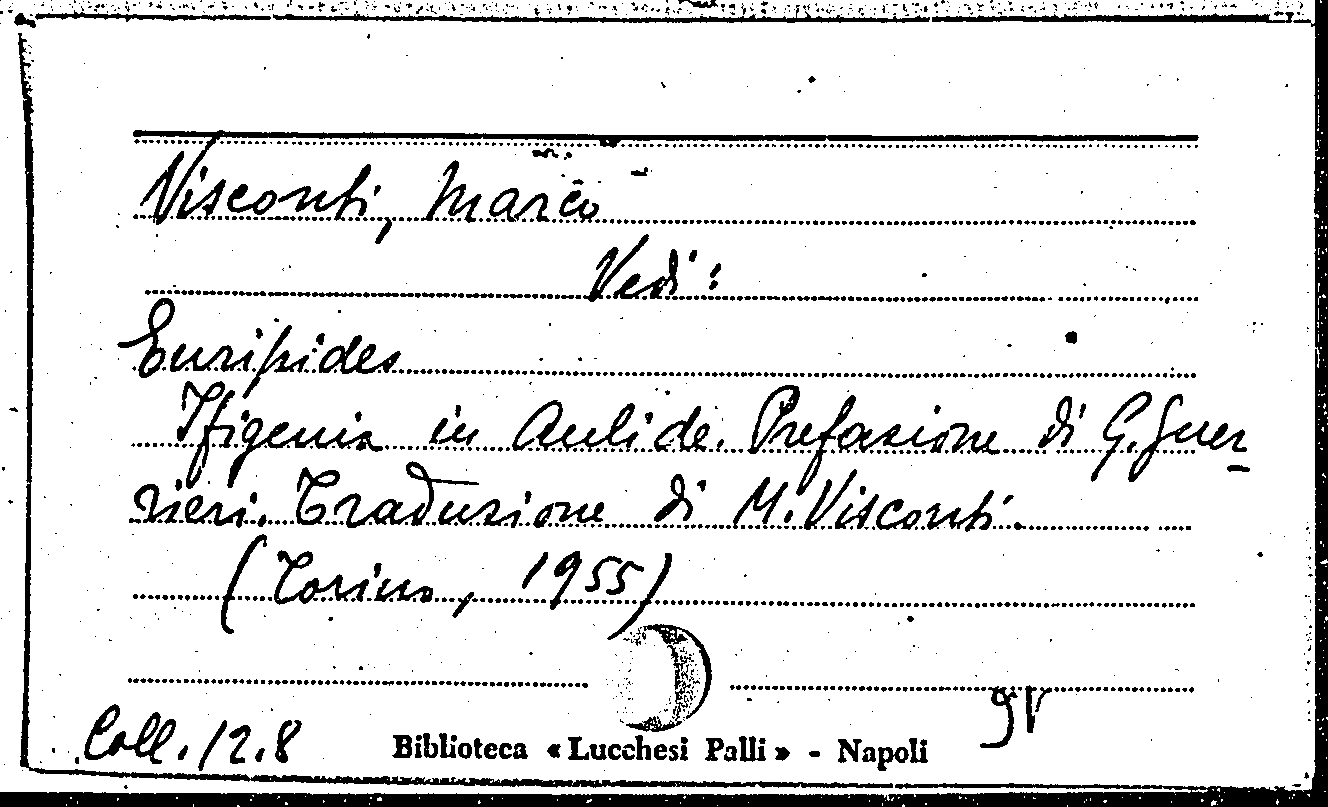 Visconti, Marco
Vedi:
Euripides
Ifigenia in Aulide. Prefazione di G. Guer-
rieri. Traduzione di M. Visconti.
(Torino, 1955)
Coll. 12.8
Biblioteca « Lucchesi Palli » - Napoli